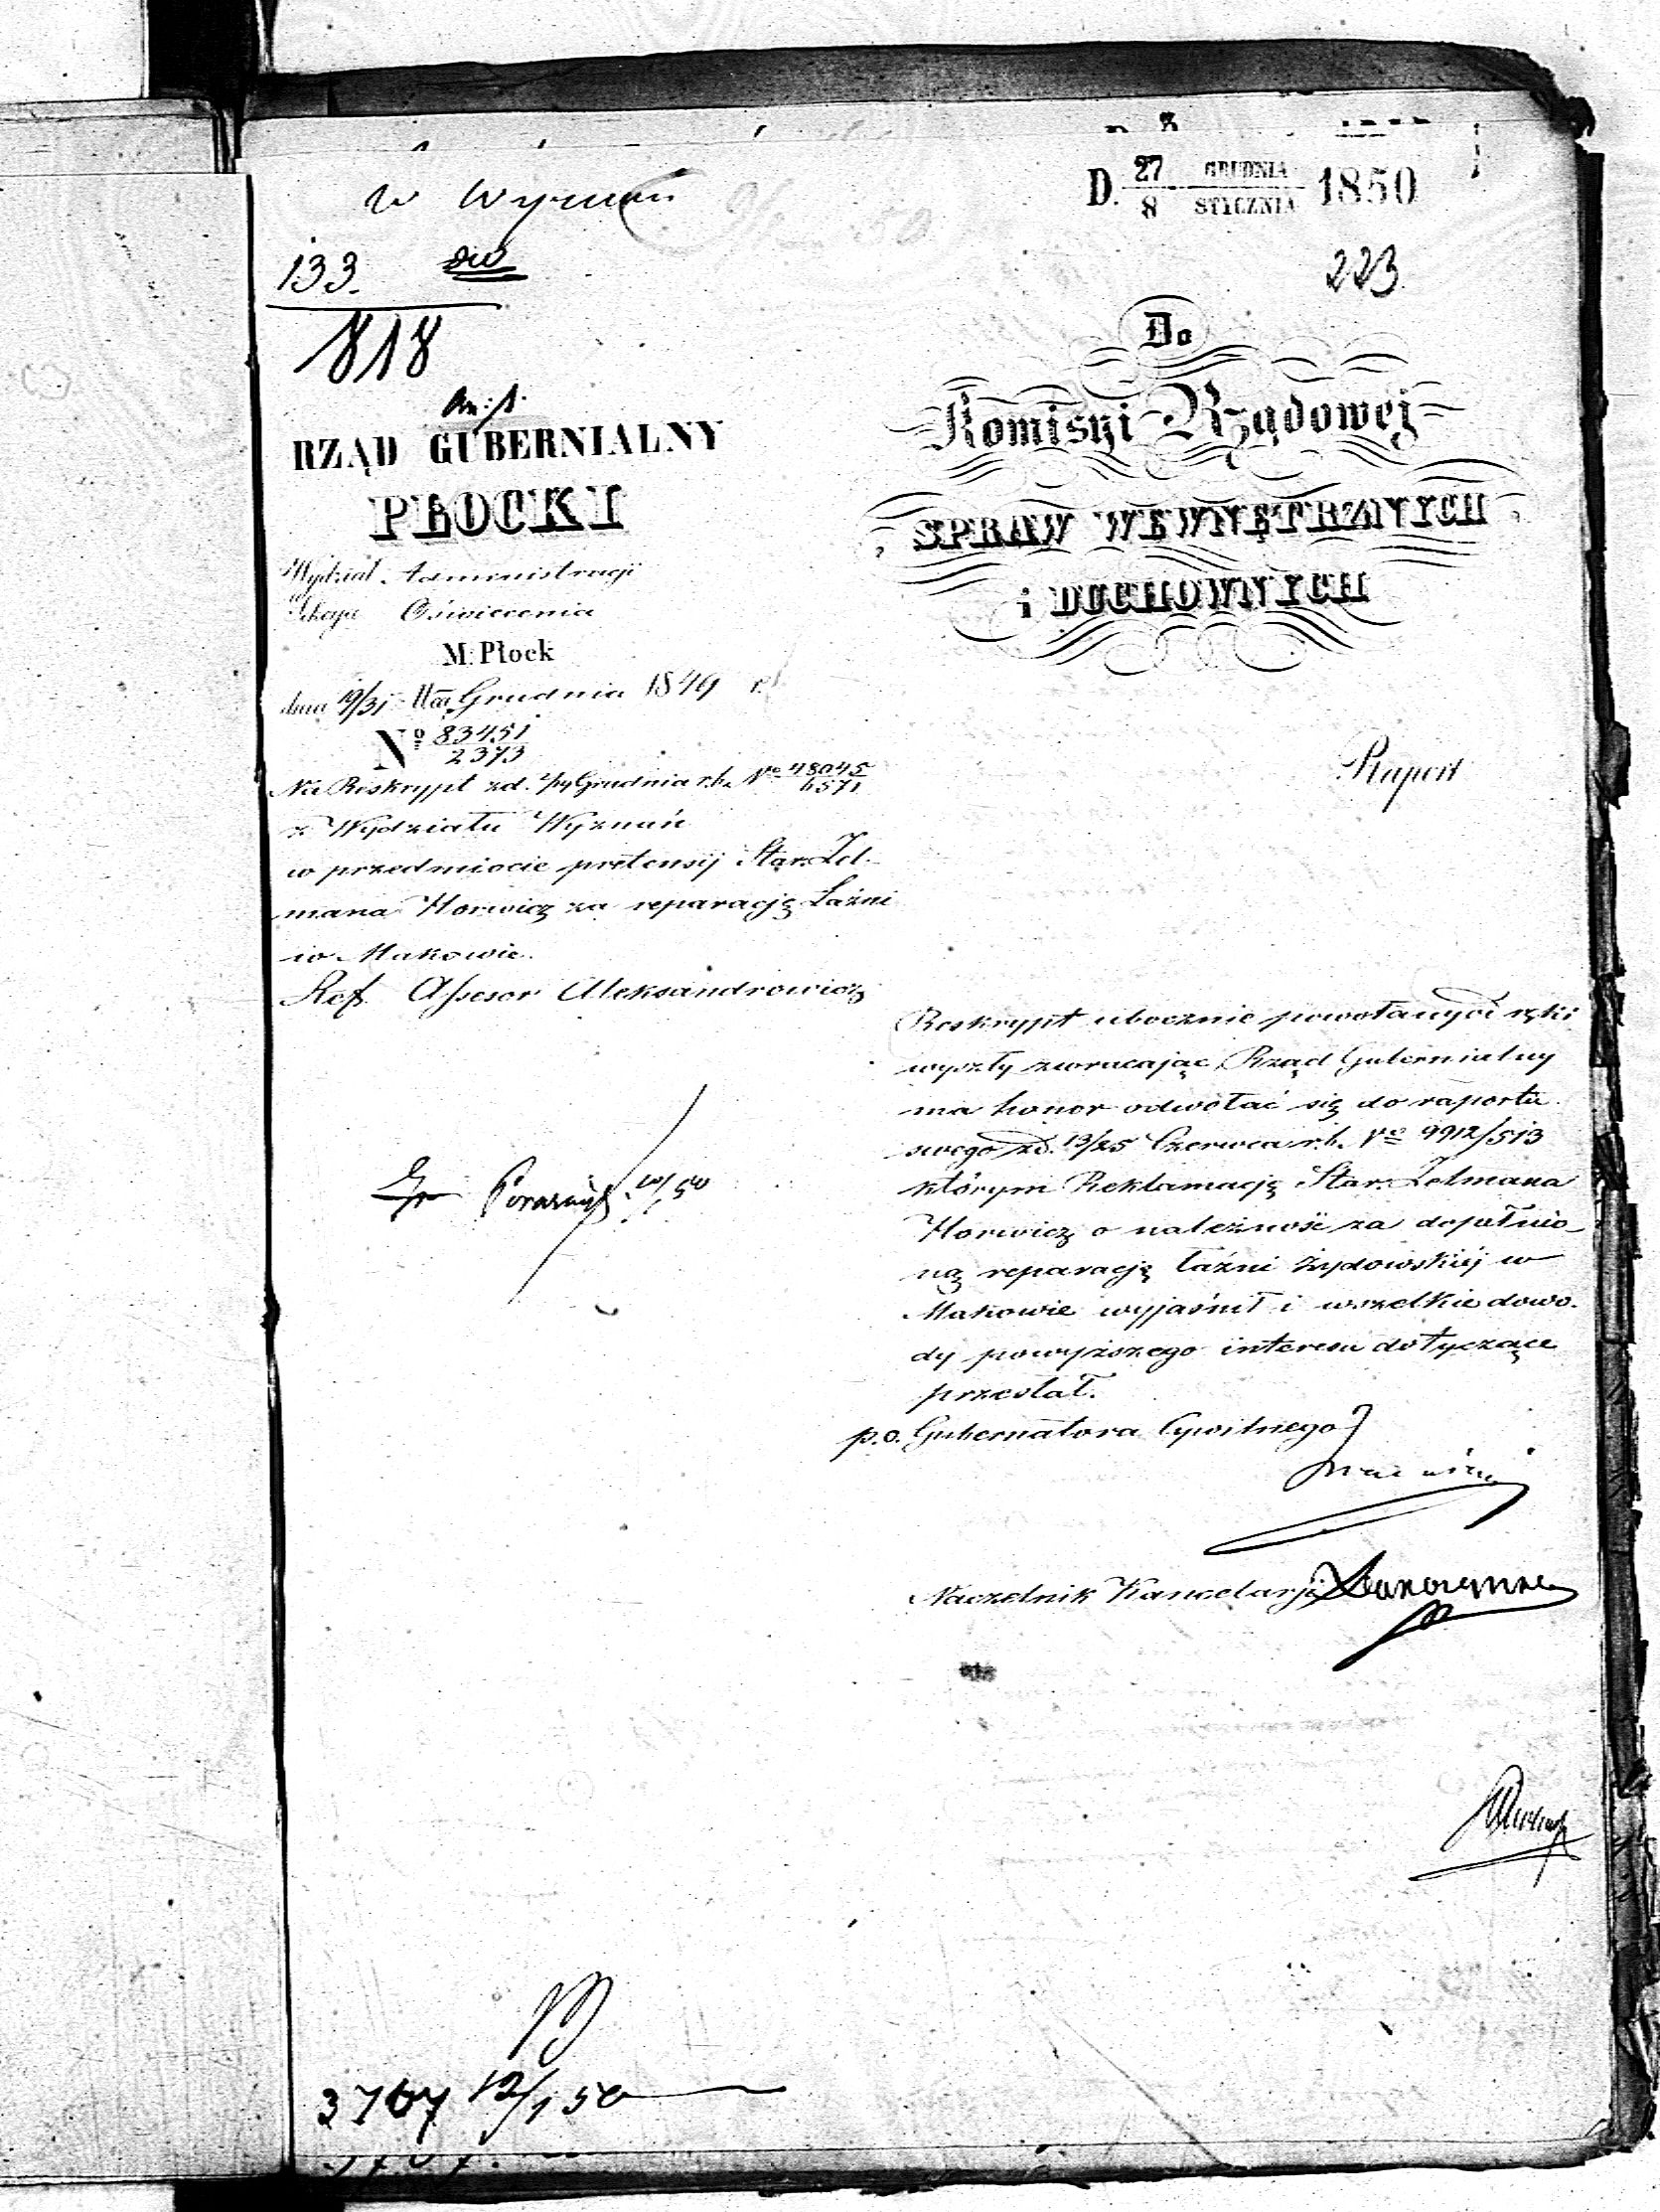 W Wyznań
D. 27/8 GRUDNIA/STYCZNIA 1850
133.
818
223
RZĄD GUBERNIALNY
PŁOCKI
Wydział Administracji
Sekcya Oświecenia
M. Płock
dnia 19/31 Grudnia 1849 r.
No 83451/2373
Na Reskrypt z d. Grudnia r.b. No 48045/6571
z Wydziału Wyznań
w przedmiocie pretensij Star. Zel-
mana Horwicz za reparacją Łaźni
w Makowie.
Ref. Assesor Aleksandrowicz
Do
Komisyi Rządowej
SPRAW WEWNĘTRZNYCH
i DUCHOWNYCH
Raport
Reskrypt ubocznie powołany
zwracając, Rząd Gubernialny
ma honor odwołać się do raportu
swego z d. 13/25 Czerwca r.b. No 9912/513
którym Reklamacją Star. Zelmana
Horwicz o należność za dopełnio-
ną reparacją łaźni żydowskiéj w
Makowie wyjaśnił i wszelkie dowo-
dy powyższego interesu dotyczące
przesłał.
p.o. Gubernatora Cywilnego
Naczelnik Kancelarji
3767 12/1 50